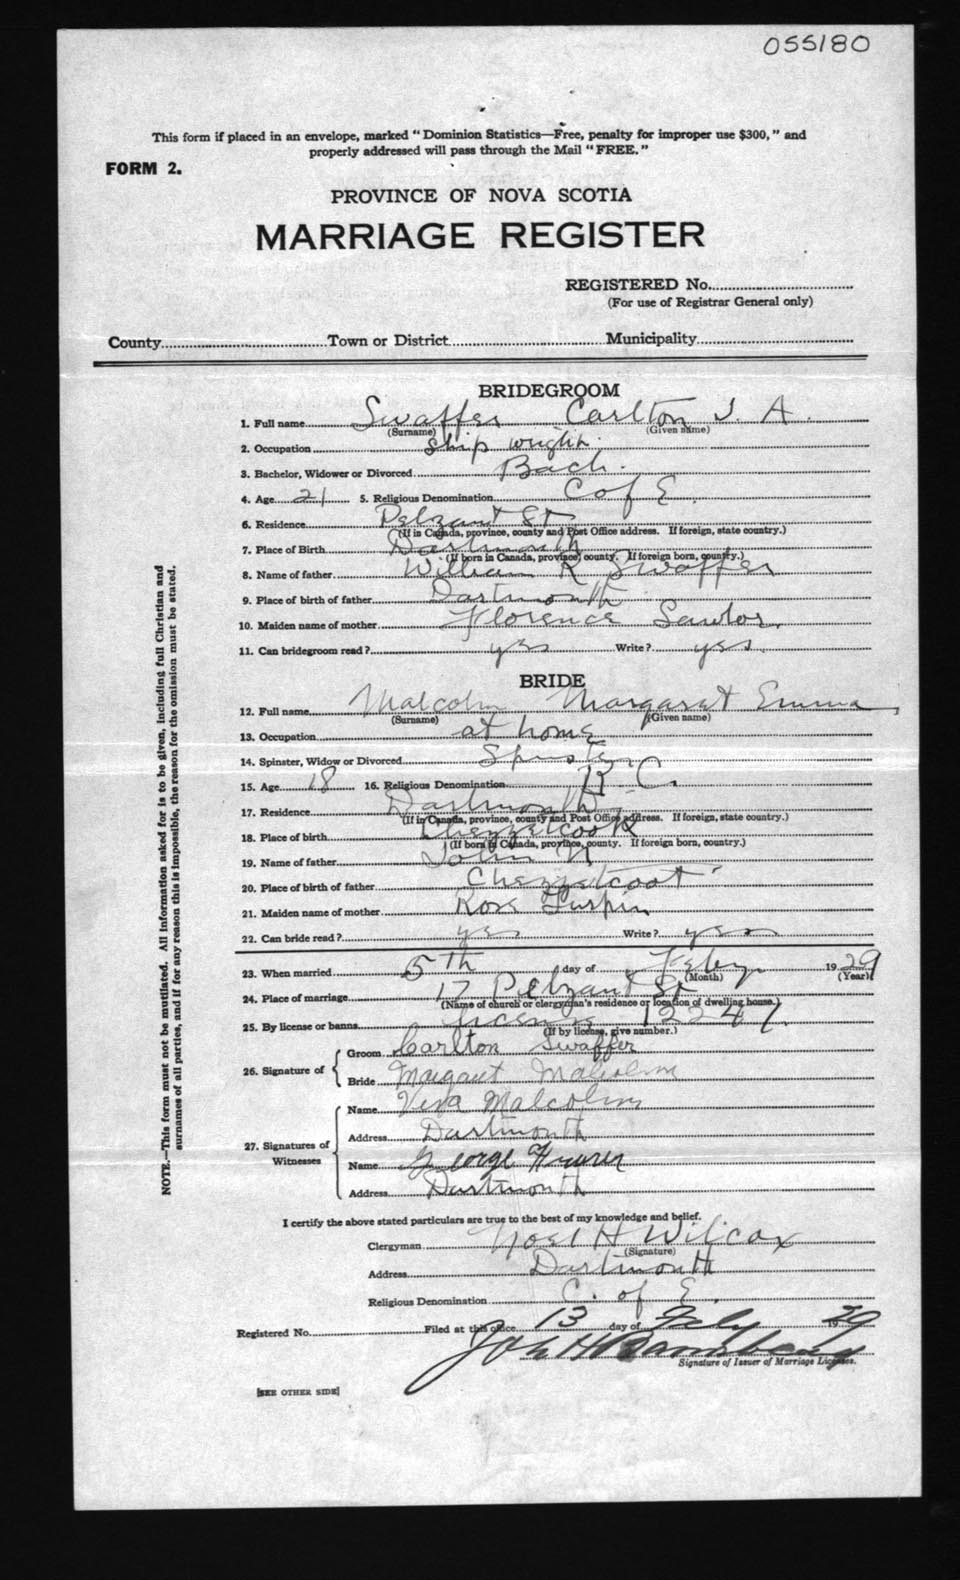 055180
This form if placed in an envelope, marked "Dominion Statistics—Free, penalty for improper use $300," and
properly addressed will pass through the Mail "FREE."
FORM 2.
PROVINCE OF NOVA SCOTIA
MARRIAGE REGISTER
REGISTERED No.
(For use of Registrar General only)
County Town or District Municipality
BRIDEGROOM
1. Full name Swaffer Carlton J. A.
(Surname) (Given name)
2. Occupation Ship wright
3. Bachelor, Widower or Divorced Bach.
4. Age 21 5. Religious Denomination C of E.
6. Residence Pelzant St
(If in Canada, province, county and Post Office address. If foreign, state country.)
7. Place of Birth Dartmouth
(If born in Canada, province, county. If foreign born, country.)
8. Name of father William R Swaffer
9. Place of birth of father Dartmouth
10. Maiden name of mother Florence
11. Can bridegroom read? yes Write? yes.
BRIDE
12. Full name Malcolm Margaret Emma
(Surname) (Given name)
13. Occupation at home
14. Spinster, Widow or Divorced Spinster
15. Age 18 16. Religious Denomination R C.
17. Residence Dartmouth
(If in Canada, province, county and Post Office address. If foreign, state country.)
18. Place of birth Chezzetcook
(If born in Canada, province, county. If foreign born, country.)
19. Name of father John N
20. Place of birth of father Chezzetcoot
21. Maiden name of mother Rose Turpin
22. Can bride read? yes Write? yes
23. When married 5th day of Feby. 1929
(Month) (Year)
24. Place of marriage 17 Pelzant St
(Name of church or clergyman's residence or location of dwelling house.)
25. By license or banns license 12247.
(If by license, give number.)
26. Signature of
Groom Carlton Swaffer
Bride Margaret Malcolm
27. Signatures of Witnesses
Name Vera Malcolm
Address Dartmouth
Name George
Address Dartmouth
I certify the above stated particulars are true to the best of my knowledge and belief.
Clergyman Noel H Wilcox
(Signature)
Address Dartmouth
Religious Denomination C. of E.
Registered No. Filed at this office 13 day of Feby 1929
John H
Signature of Issuer of Marriage Licenses.
[SEE OTHER SIDE]
NOTE.—This form must not be mutilated. All information asked for is to be given, including full Christian and
surnames of all parties, and if for any reason this is impossible, the reason for the omission must be stated.